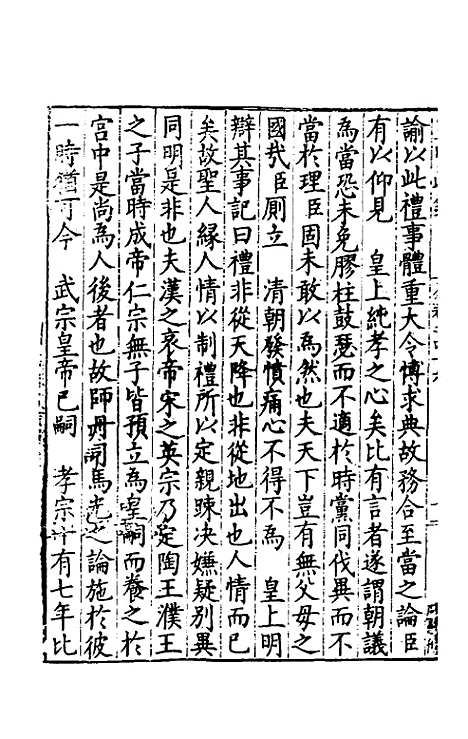 諭以此禮事體重大令博求典故務合至當之論臣
有以仰見　皇上純孝之心矣比有言者遂謂朝議
為當恐未免膠柱鼓瑟而不適於時黨同伐異而不
當於理臣固未敢以為然也夫天下豈有無父母之
國㢤臣厠立　清朝發憤痛心不得不為　皇上明
辯其事記曰禮非從天降也非從地出也人情而已
矣故聖人緣人情以制禮所以定親踈决嫌疑别異
同明是非也夫漢之哀帝宋之英宗乃定陶王濮王
之子當時成帝仁宗無子皆預立為皇嗣而養之於
宫中是尚為人後者也故師丹司馬光之論施於彼
一時猶可今　武宗皇帝已嗣　孝宗十有七年比